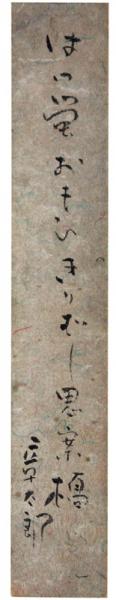 はつ蛍おもひきりばし思案橋
章太郎